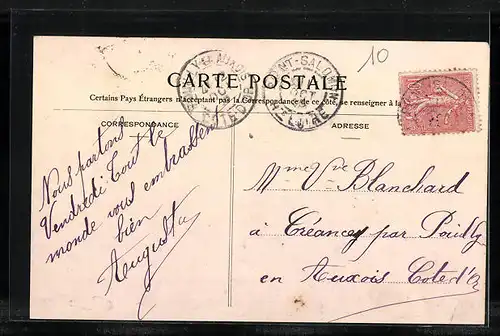 10
CARTE POSTALE
Certains Pays Étrangers n'acceptant pas la Correspondance de ce côté, se renseigner à la
CORRESPONDANCE
ADRESSE
Nous partons
Vendredi Tout le
monde vous embrassent
bien
Augusta
Mme Vve Blanchard
à Créancey par Pouilly
en Auxois Cote d'Or